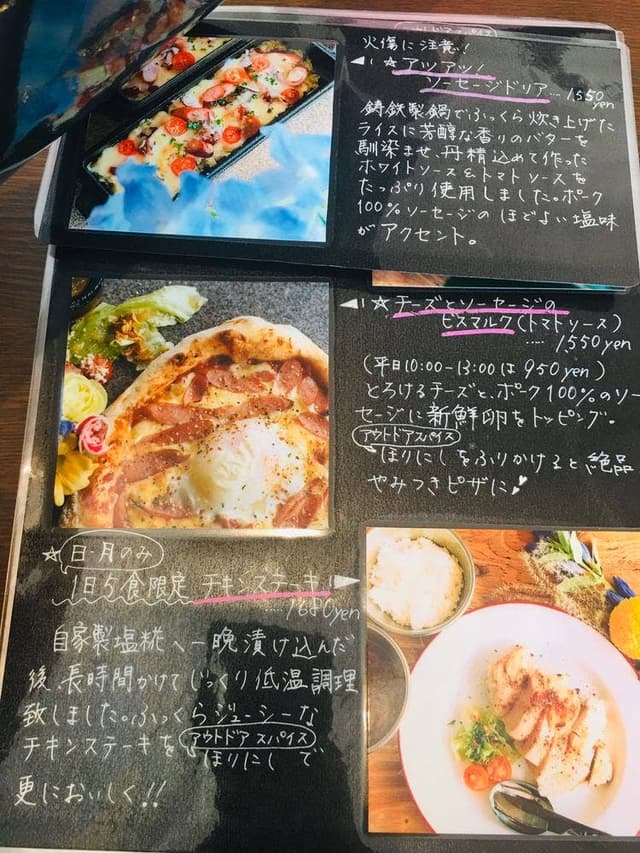 アウトドアスパイス
火傷に注意!
☆アツアツ!
ソーセージドリア … 1550
yen
鋳鉄製鍋でふっくら炊き上げた
ライスに芳醇な香りのバターを
馴染ませ、丹精込めて作った
ホワイトソース&トマトソースを
たっぷり使用しました。ポーク
100%ソーセージの ほどよい塩味
が アクセント。
☆チーズとソーセージの
ビスマルク(トマトソース)
.... 1550yen
(平日10:00-13:00は950yen)
とろけるチーズと、ポーク100%のソー
セージに新鮮卵をトッピング。
アウトドアスパイス
ほりにしをふりかけると絶品
やみつきピザに
☆日・月のみ
1日5食限定 チキンステーキ!
.... 1680yen
自家製塩糀へ一晩漬け込んだ
後、長時間かけてじっくり低温調理
致しました。ふっくらジューシーな
チキンステーキを アウトドアスパイス
ほりにし で
更においしく!!